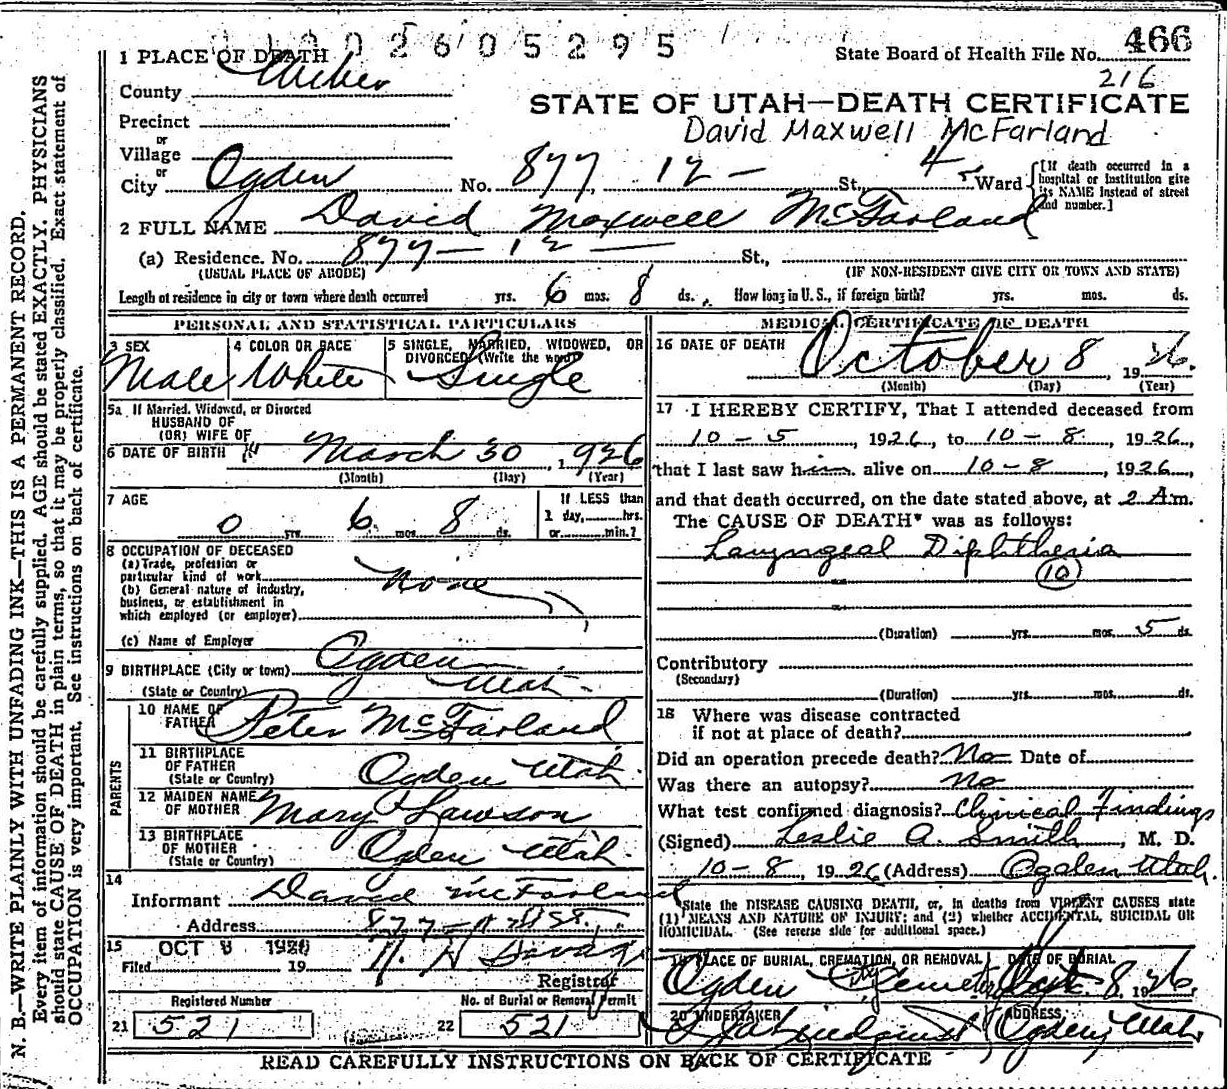 N. B.—WRITE PLAINLY WITH UNFADING INK—THIS IS A PERMANENT RECORD.
Every item of information should be carefully supplied. AGE should be stated EXACTLY. PHYSICIANS
should state CAUSE OF DEATH in plain terms, so that it may be properly classified. Exact statement of
OCCUPATION is very important. See instructions on back of certificate.
2605295
1 PLACE OF DEATH
State Board of Health File No. 466
216
County Weber
STATE OF UTAH—DEATH CERTIFICATE
Precinct
David Maxwell McFarland
or
Village
or
City Ogden No. 877 12 - St., 4 Ward
[If death occurred in a
hospital or institution give
its NAME instead of street
and number.]
2 FULL NAME David Maxwell McFarland
(a) Residence. No. 877 - 12 St.,
(USUAL PLACE OF ABODE) (IF NON-RESIDENT GIVE CITY OR TOWN AND STATE)
Length of residence in city or town where death occurred yrs. 6 mos. 8 ds. How long in U. S., if foreign birth? yrs. mos. ds.
PERSONAL AND STATISTICAL PARTICULARS
3 SEX
Male
4 COLOR OR RACE
White
5 SINGLE, MARRIED, WIDOWED, OR
DIVORCED (Write the word)
Single
5a If Married, Widowed, or Divorced
HUSBAND OF
(OR) WIFE OF
6 DATE OF BIRTH March 30, 1926
(Month) (Day) (Year)
7 AGE
0 yrs. 6 mos. 8 ds.
If LESS than
1 day, hrs.
or min.?
8 OCCUPATION OF DECEASED
(a) Trade, profession or
particular kind of work None
(b) General nature of industry,
business, or establishment in
which employed (or employer)
(c) Name of Employer
9 BIRTHPLACE (City or town) Ogden
(State or Country) Utah.
PARENTS
10 NAME OF
FATHER Peter McFarland
11 BIRTHPLACE
OF FATHER
(State or Country) Ogden Utah.
12 MAIDEN NAME
OF MOTHER Mary Lawson
13 BIRTHPLACE
OF MOTHER
(State or Country) Ogden Utah.
14
Informant David McFarland
Address 877 - 12 St.
15
Filed OCT 8 1926 19
Registrar
Registered Number
21 521
No. of Burial or Removal Permit
22 521
MEDICAL CERTIFICATE OF DEATH
16 DATE OF DEATH October 8 1926.
(Month) (Day) (Year)
17 I HEREBY CERTIFY, That I attended deceased from
10 - 5, 1926, to 10 - 8, 1926,
that I last saw him alive on 10 - 8, 1926,
and that death occurred, on the date stated above, at 2 A m.
The CAUSE OF DEATH* was as follows:
Laryngeal Diphtheria
10
(Duration) yrs. mos. 5 ds.
Contributory
(Secondary)
(Duration) yrs. mos. ds.
18 Where was disease contracted
if not at place of death?
Did an operation precede death? No Date of
Was there an autopsy? No
What test confirmed diagnosis? Clinical Findings
(Signed) Leslie A. Smith, M. D.
10 - 8, 1926 (Address) Ogden Utah.
State the DISEASE CAUSING DEATH, or, in deaths from VIOLENT CAUSES state
(1) MEANS AND NATURE OF INJURY; and (2) whether ACCIDENTAL, SUICIDAL OR
HOMICIDAL. (See reverse side for additional space.)
19 PLACE OF BURIAL, CREMATION, OR REMOVAL
Ogden City Cemetery
DATE OF BURIAL
Oct. 8, 1926.
20 UNDERTAKER
Lindquist
ADDRESS
Ogden, Utah
READ CAREFULLY INSTRUCTIONS ON BACK OF CERTIFICATE